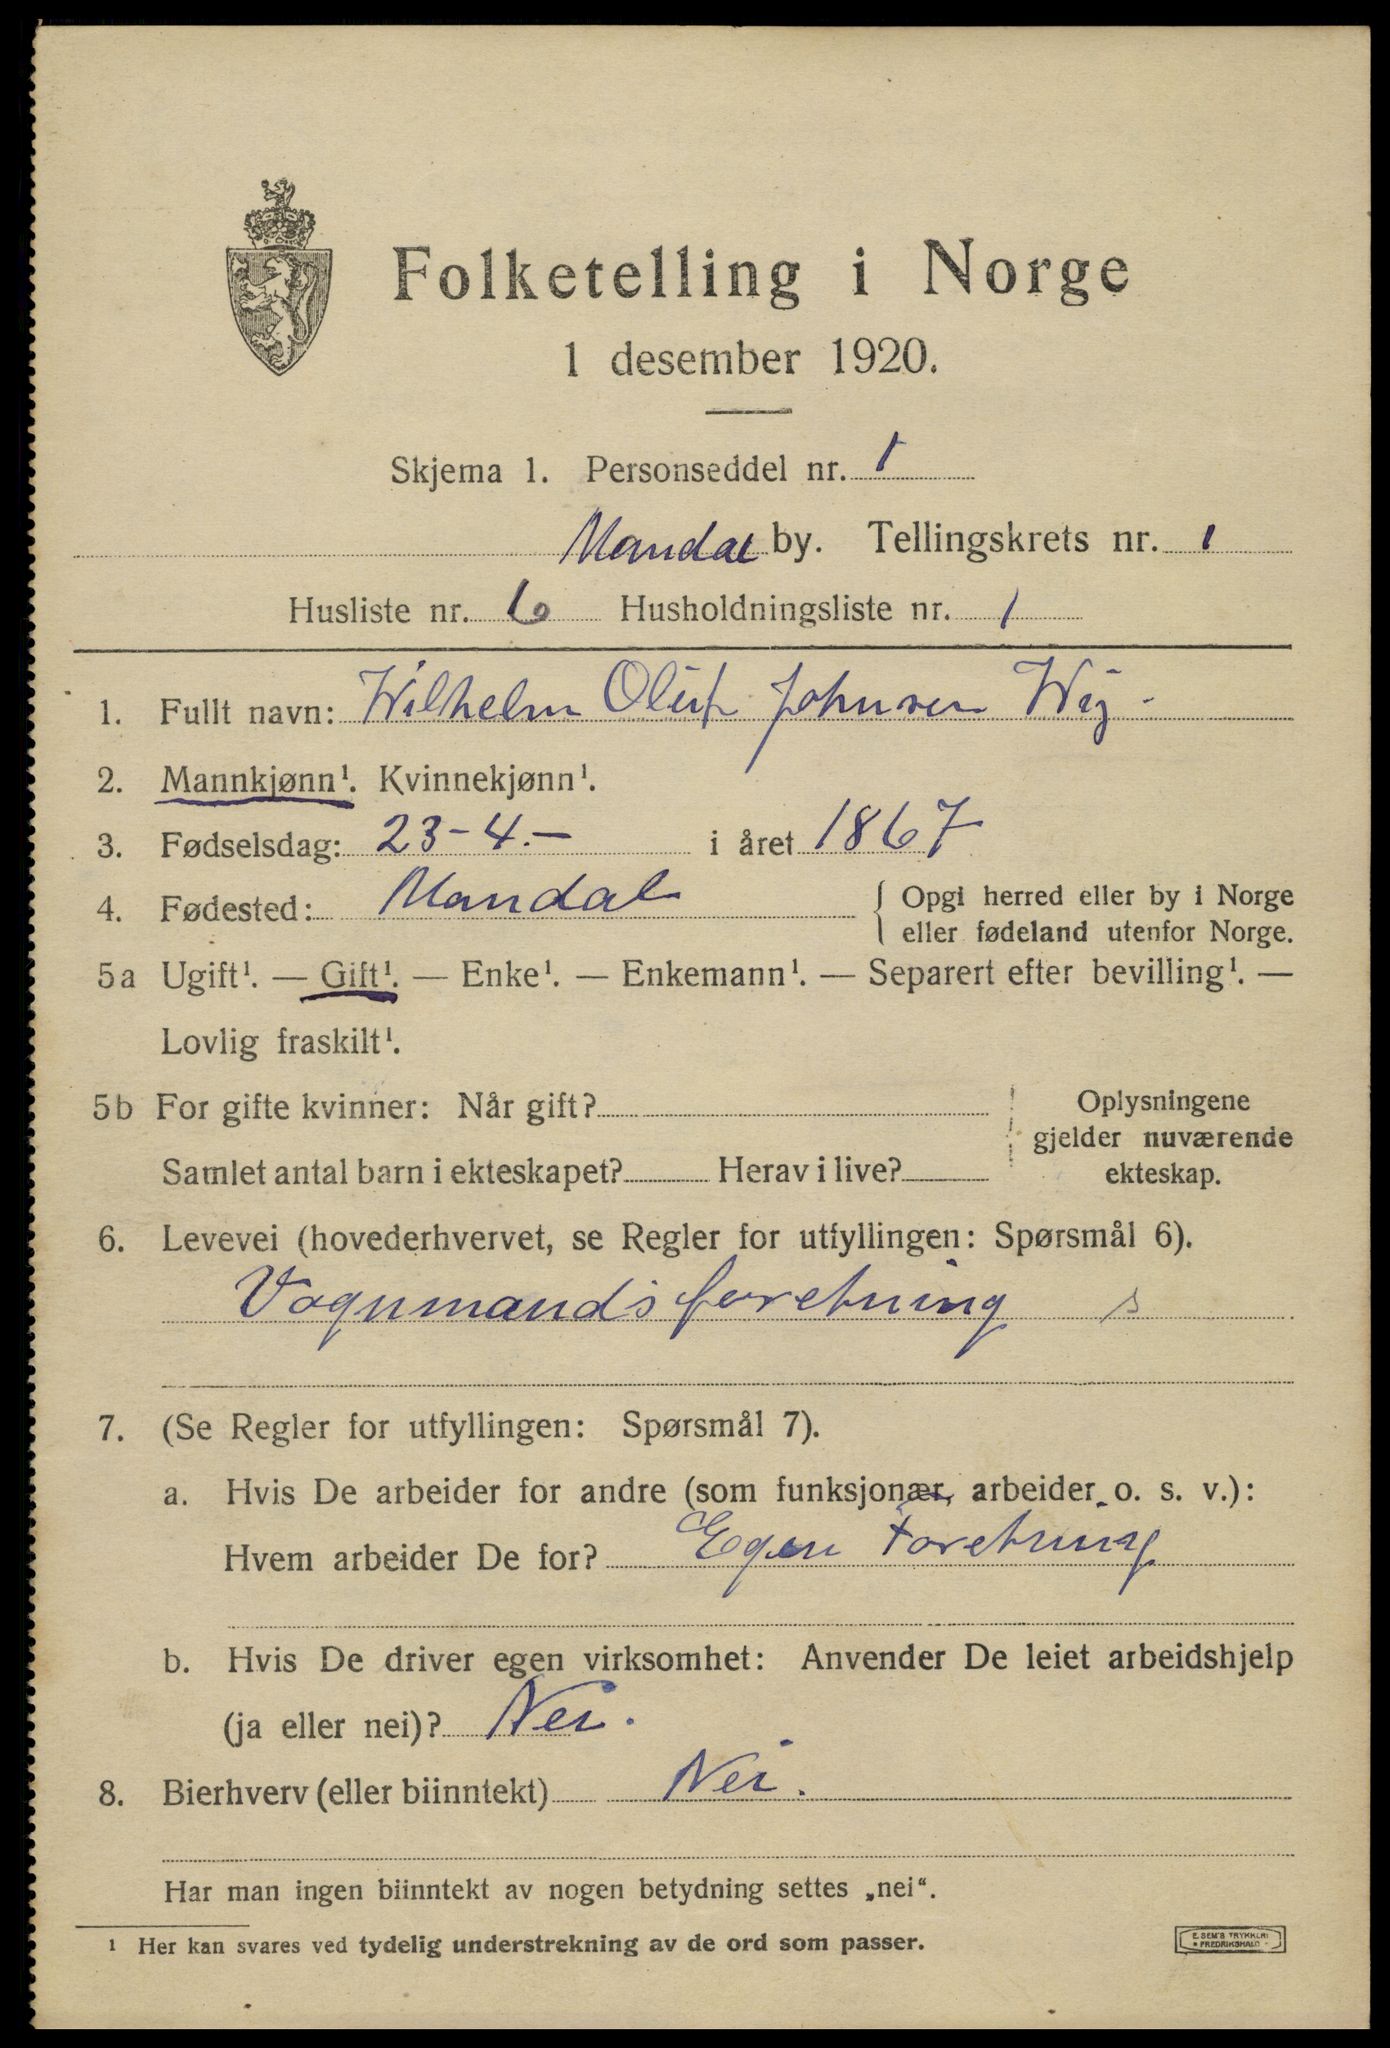 Folketelling i Norge
1 desember 1920.
Skjema 1. Personseddel nr. 1
Mandal by. Tellingskrets nr. 1
Husliste nr. 6 Husholdningsliste nr. 1
1. Fullt navn: Wilhelm Oluf Johnsen Wig.
2. Mannkjønn¹. Kvinnekjønn¹.
3. Fødselsdag: 23-4.- i året 1867
4. Fødested: Mandal { Opgi herred eller by i Norge
eller fødeland utenfor Norge.
5a Ugift¹. — Gift¹. — Enke¹. — Enkemann¹. — Separert efter bevilling¹. —
Lovlig fraskilt¹.
5b For gifte kvinner: Når gift? Oplysningene
gjelder nuværende
Samlet antal barn i ekteskapet? Herav i live? ekteskap.
6. Levevei (hovederhvervet, se Regler for utfyllingen: Spørsmål 6).
Vognmandsforetning s
7. (Se Regler for utfyllingen: Spørsmål 7).
a. Hvis De arbeider for andre (som funksjonær, arbeider o. s. v.):
Hvem arbeider De for? Egen Foretning
b. Hvis De driver egen virksomhet: Anvender De leiet arbeidshjelp
(ja eller nei)? Nei.
8. Bierhverv (eller biinntekt) Nei.
Har man ingen biinntekt av nogen betydning settes „nei“.
¹ Her kan svares ved tydelig understrekning av de ord som passer.
E. SEM'S TRYKKERI
• FREDRIKSHALD •